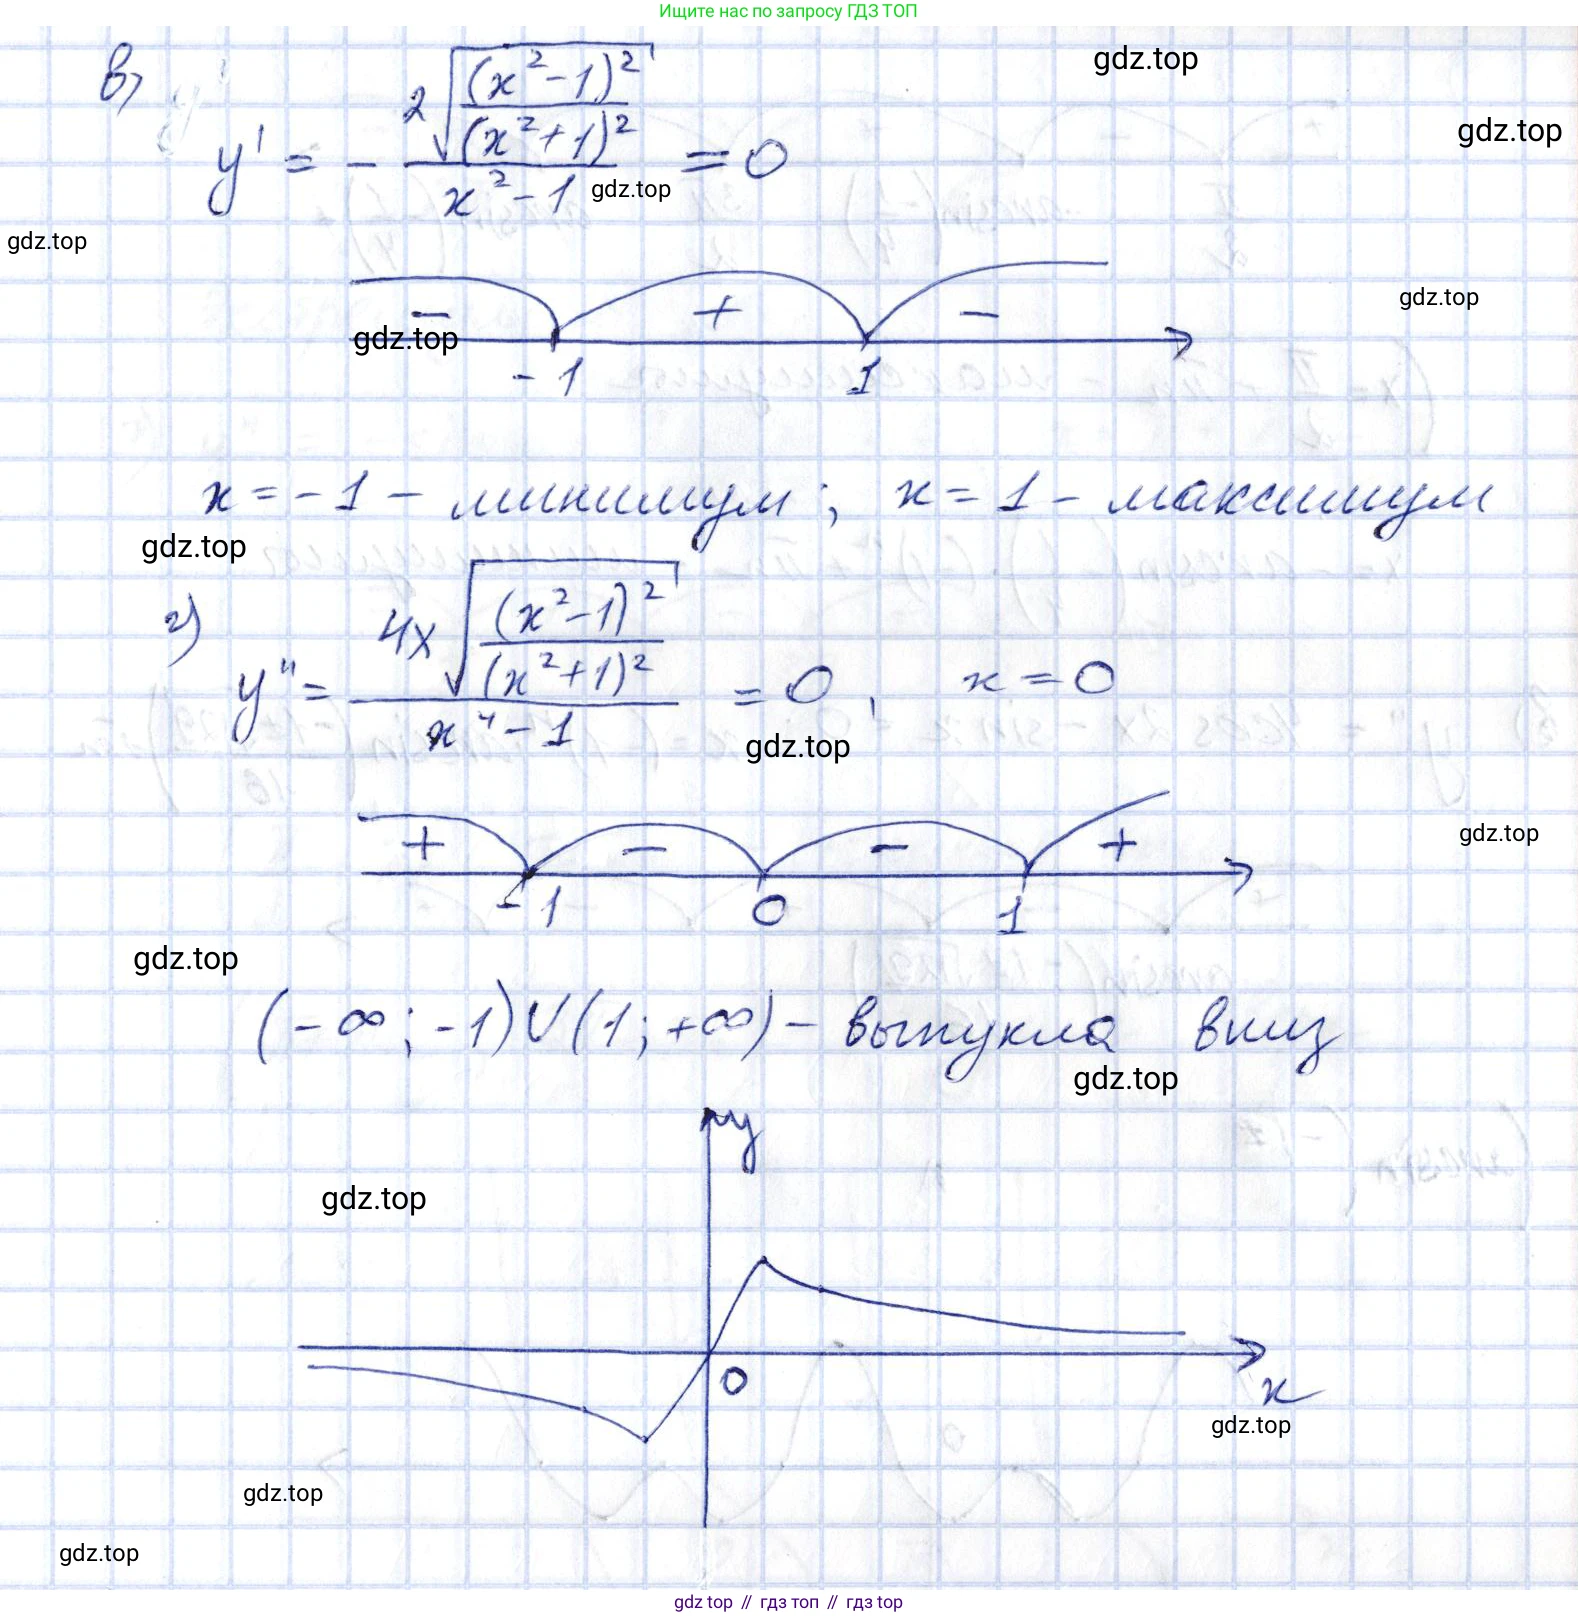 Ищите нас по запросу ГДЗ ТОП
в)
gdz.top
gdz.top
y' = - 2√((x²-1)²/(x²+1)²) / (x²-1) = 0
gdz.top
gdz.top
gdz.top
- + -
gdz.top
-1 1
x = -1 - минимум ; x = 1 - максимум
gdz.top
г) y'' = 4x√((x²-1)²/(x²+1)²) / (x⁴-1) = 0, x = 0
gdz.top
+ - - +
gdz.top
-1 0 1
gdz.top
(-∞; -1) ∪ (1; +∞) - выпукла вниз
gdz.top
y
gdz.top
0
x
gdz.top
gdz.top
gdz.top
gdz top // гдз топ // гдз top